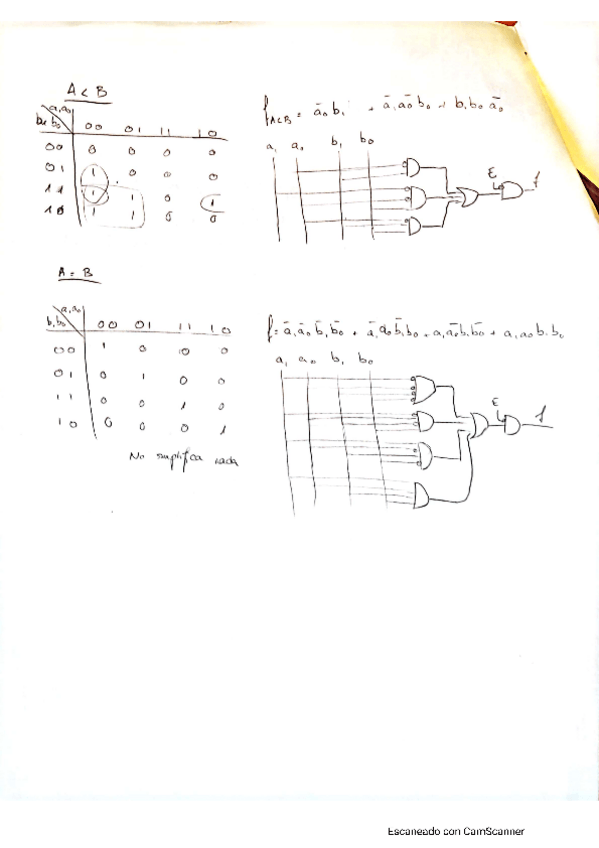 A < B
a₁a₀
b₁b₀ 00 01 11 10
00 0 0 0 0
01 1 0 0 0
11 1 1 0 1
10 1 1 0 0
f A<B = ā₀b₁ + ā₁ā₀b₀ + b₁b₀ā₀
a₁ a₀ b₁ b₀
E f
A = B
a₁a₀
b₁b₀ 00 01 11 10
00 1 0 0 0
01 0 1 0 0
11 0 0 1 0
10 0 0 0 1
No simplifica nada
f = ā₁ā₀b̄₁b̄₀ + ā₁a₀b̄₁b₀ + a₁ā₀b₁b̄₀ + a₁a₀b₁b₀
a₁ a₀ b₁ b₀
E f
Escaneado con CamScanner